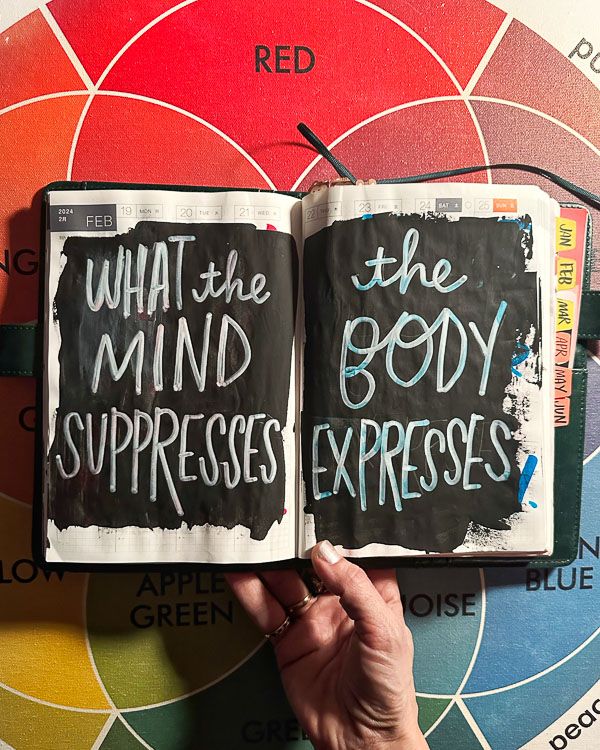 RED
2024
2月
FEB
19 MON 月
20 TUE 火
21 WED 水
22
23 FRI 金
24 SAT 土
25 SUN 日
WHAT the
MIND
SUPPRESSES
the
BODY
EXPRESSES
JAN
FEB
MAR
APR
MAY
JUN
APPLE
GREEN
BLUE